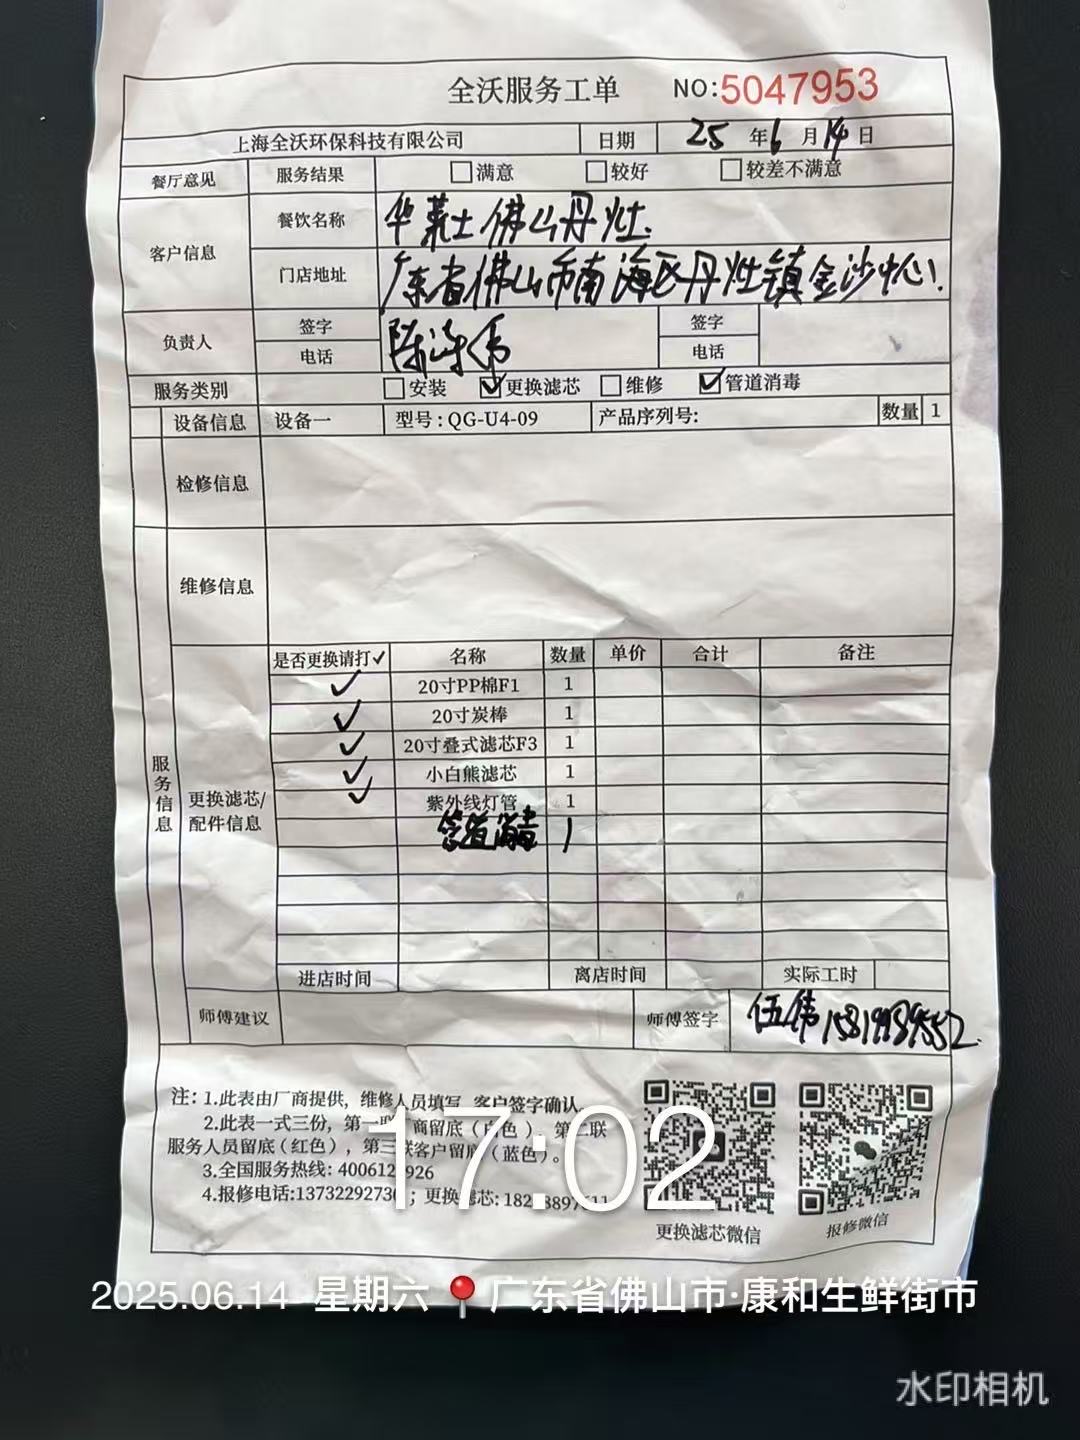 全沃服务工单 NO:5047953
上海全沃环保科技有限公司 日期 25年6月14日
餐厅意见 服务结果 □满意 □较好 □较差不满意
客户信息 餐饮名称 华莱士佛山丹灶.
门店地址 广东省佛山市南海区丹灶镇金沙中心
负责人 签字 签字
电话 陈 电话
服务类别 □安装 ☑更换滤芯 □维修 ☑管道消毒
设备信息 设备一 型号:QG-U4-09 产品序列号: 数量 1
检修信息
维修信息
是否更换请打✓ 名称 数量 单价 合计 备注
✓ 20寸PP棉F1 1
✓ 20寸炭棒 1
✓ 20寸叠式滤芯F3 1
✓ 小白熊滤芯 1
✓ 紫外线灯管 1
管道消毒 1
服务信息
更换滤芯/
配件信息
进店时间 离店时间 实际工时
师傅建议 师傅签字 伍伟15819989552
注: 1.此表由厂商提供，维修人员填写，客户签字确认.
2.此表一式三份，第一联厂商留底（白色），第二联
服务人员留底(红色)，第三联客户留底（蓝色）。
3.全国服务热线: 400612 926
4.报修电话:1373229273 ；更换滤芯: 182 8897 11
更换滤芯微信 报修微信
17:02
2025.06.14 星期六 广东省佛山市·康和生鲜街市
水印相机